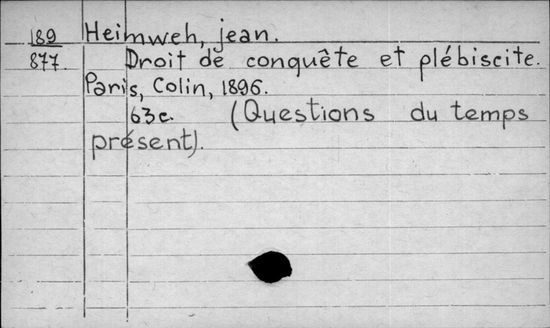 189 Heimweh, jean.
877. Droit de conquête et plébiscite.
Paris, Colin, 1896.
63c. (Questions du temps
présent).